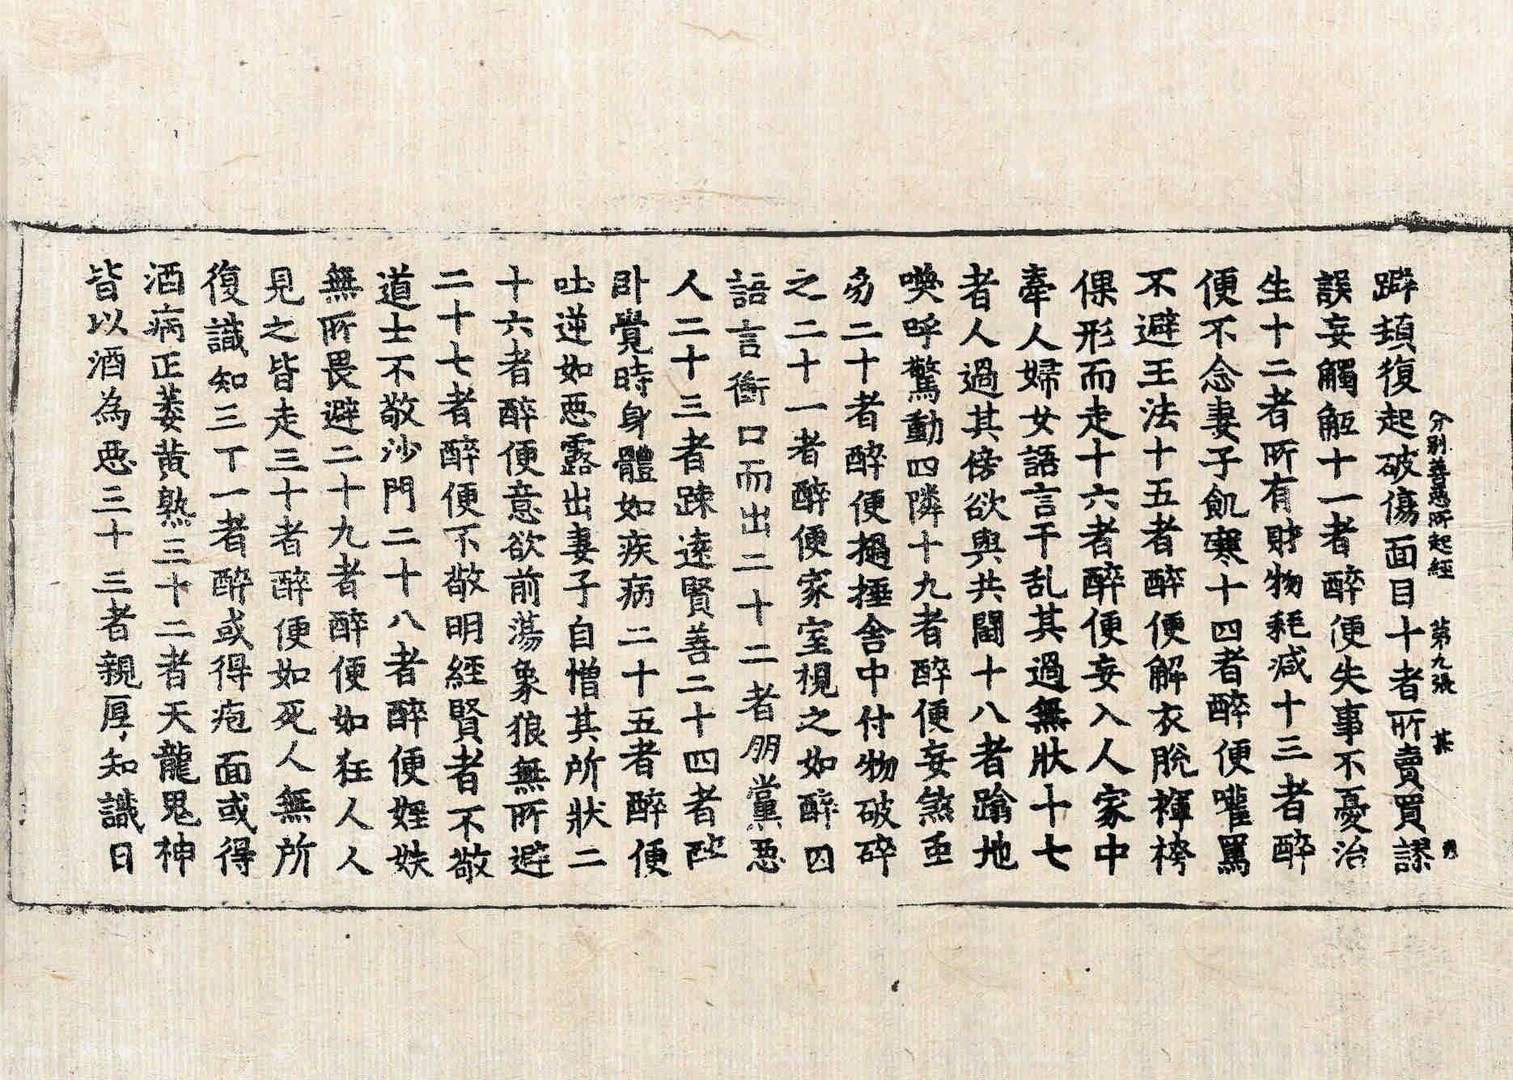 分别善惡所起經 第九張 甚
躃頓復起破傷面目十者所賣買謬
誤妄觸觝十一者醉便失事不憂治
生十二者所有財物耗减十三者醉
便不念妻子飢寒十四者醉便嚾罵
不避王法十五者醉便解衣脫褌袴
倮形而走十六者醉便妄入人家中
牽人婦女語言干乱其過無狀十七
者人過其傍欲與共鬪十八者蹹地
喚呼驚動四隣十九者醉便妄煞䖝
豸二十者醉便撾捶舍中付物破碎
之二十一者醉便家室視之如醉囚
語言衝口而出二十二者朋黨惡
人二十三者踈遠賢善二十四者醉
卧覺時身體如疾病二十五者醉便
吐逆如惡露出妻子自憎其所狀二
十六者醉便意欲前蕩象狼無所避
二十七者醉便不敬明經賢者不敬
道士不敬沙門二十八者醉便婬妷
無所畏避二十九者醉便如狂人人
見之皆走三十者醉便如死人無所
復識知三丁一者醉或得疱面或得
酒病正萎黄熟三十二者天龍鬼神
皆以酒為惡三十三者親厚知識日